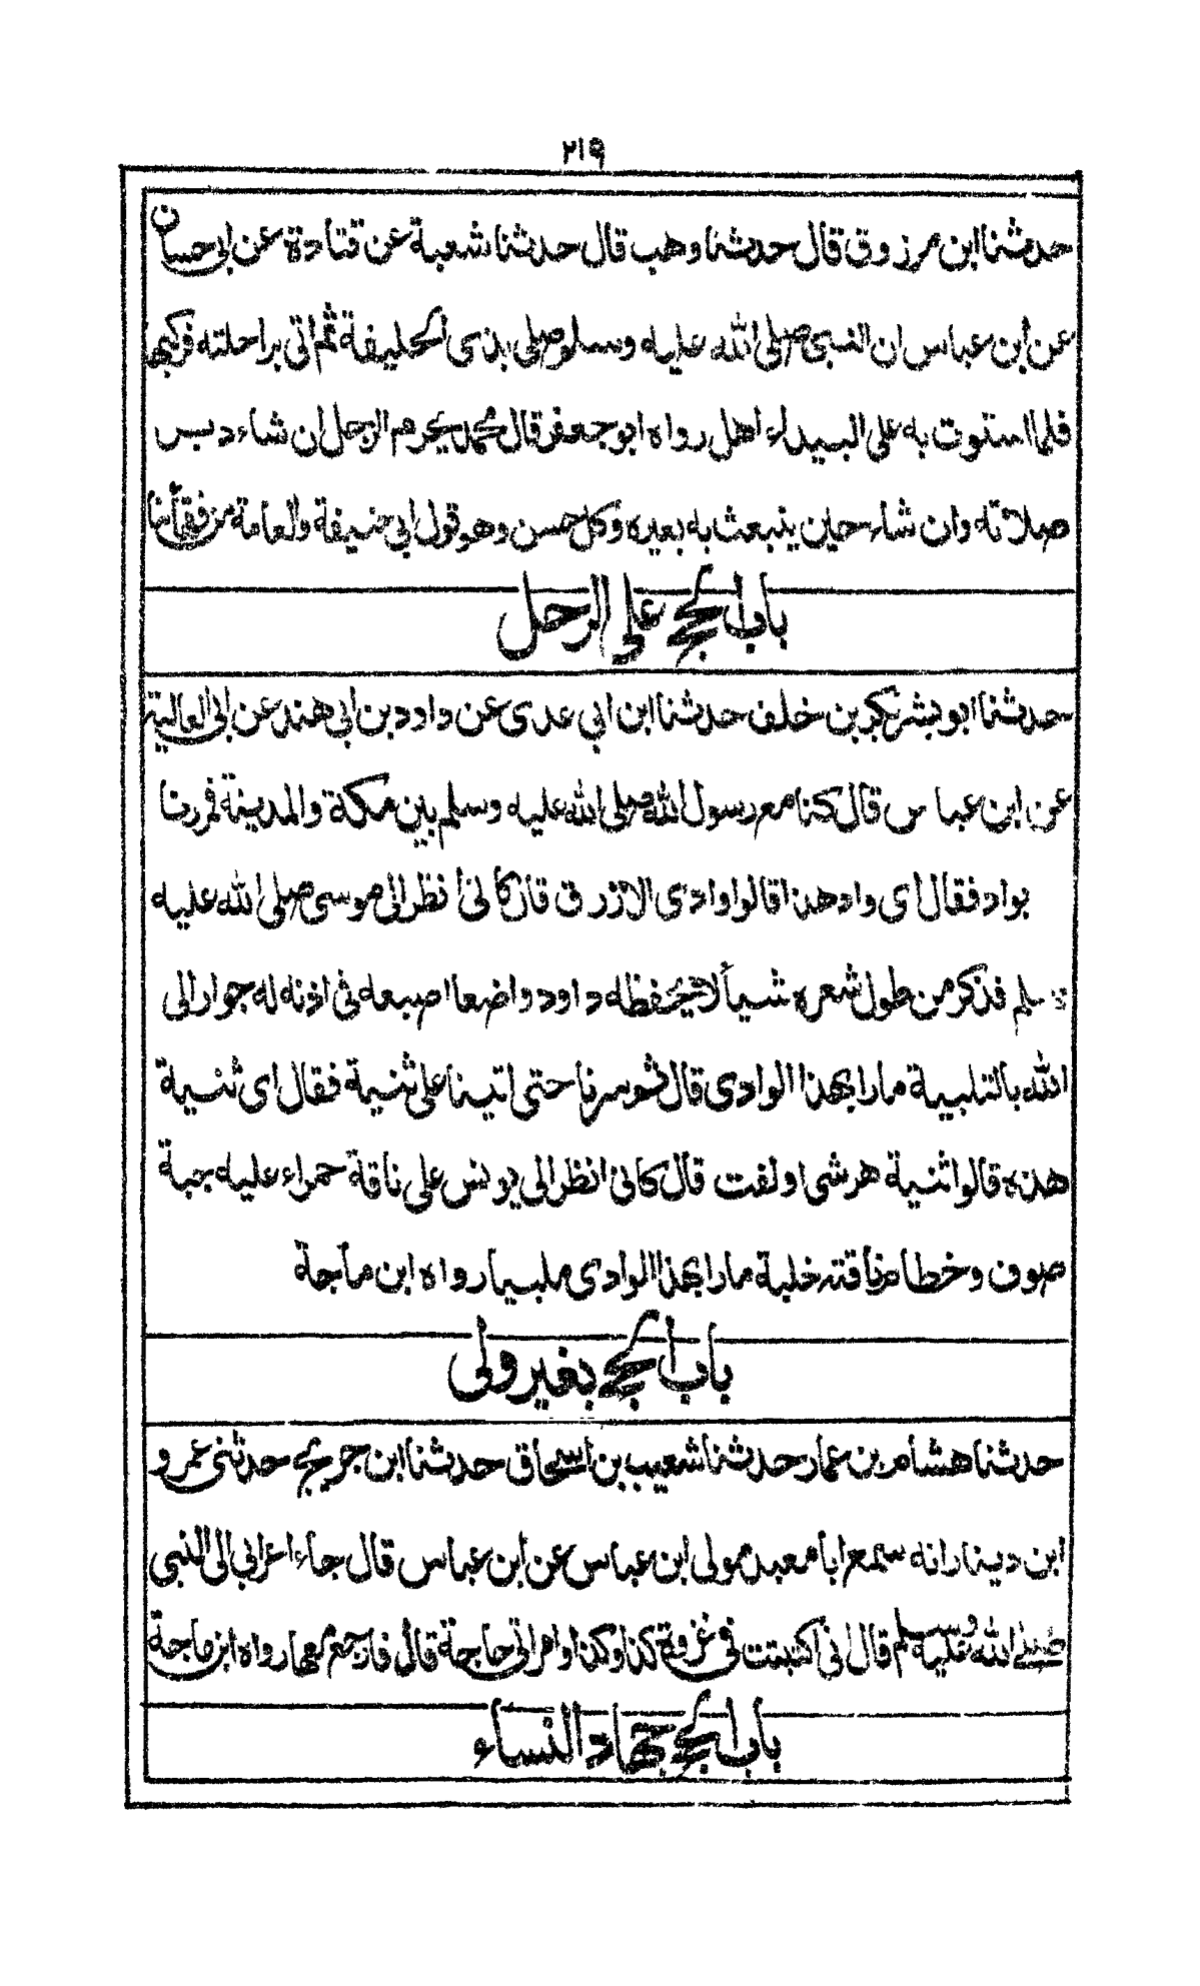 ٢١٩
حدثنا ابن مرزوق قال حدثنا وهب قال حدثنا شعبة عن قتادة عن ابي حسان
عن ابن عباس ان النبي صلى الله عليه وسلم صلى بذى الحليفة ثم اتى براحلته فركبها
فلما استوت به على البيداء اهل رواه ابو جعفر قال محمد يحرم الرجل ان شاء دبر
صلاته وان شاء حين ينبعث به بعيره وكل حسن وهو قول ابي حنيفة والعامة من فقهائنا
باب الحج على الرحل
حدثنا ابو بشر بكر بن خلف حدثنا ابن ابي عدى عن داود بن ابي هند عن ابى العالية
عن ابن عباس قال كنا مع رسول الله صلى الله عليه وسلم بين مكة والمدينة فمررنا
بواد فقال اى واد هذا قالوا وادى الازرق قال كانى انظر الى موسى صلى الله عليه
سلم فذكر من طول شعره شيأ لا يحفظه داود واضعا اصبعه فى اذنه له جوار الى
الله بالتلبية مارا بهذا الوادى قال ثم سرنا حتى اتينا على ثنية فقال اى ثنية
هذه قالوا ثنية هرشى او لفت قال كانى انظر الى يونس على ناقة حمراء عليه جبة
صوف وخطام ناقته خلبة مارا بهذا الوادى ملبيا رواه ابن ماجة
باب الحج بغير ولى
حدثنا هشام بن عمار حدثنا شعيب بن اسحاق حدثنا ابن جريج حدثنى عمرو
ابن دينار انه سمع ابا معبد مولى ابن عباس عن ابن عباس قال جاء اعرابي الى النبي
صلى الله عليه وسلم قال انى اكتتبت فى غزوة كذا وكذا وامراتى حاجة قال فارجع معها رواه ابن ماجة
باب الحج جهاد النساء